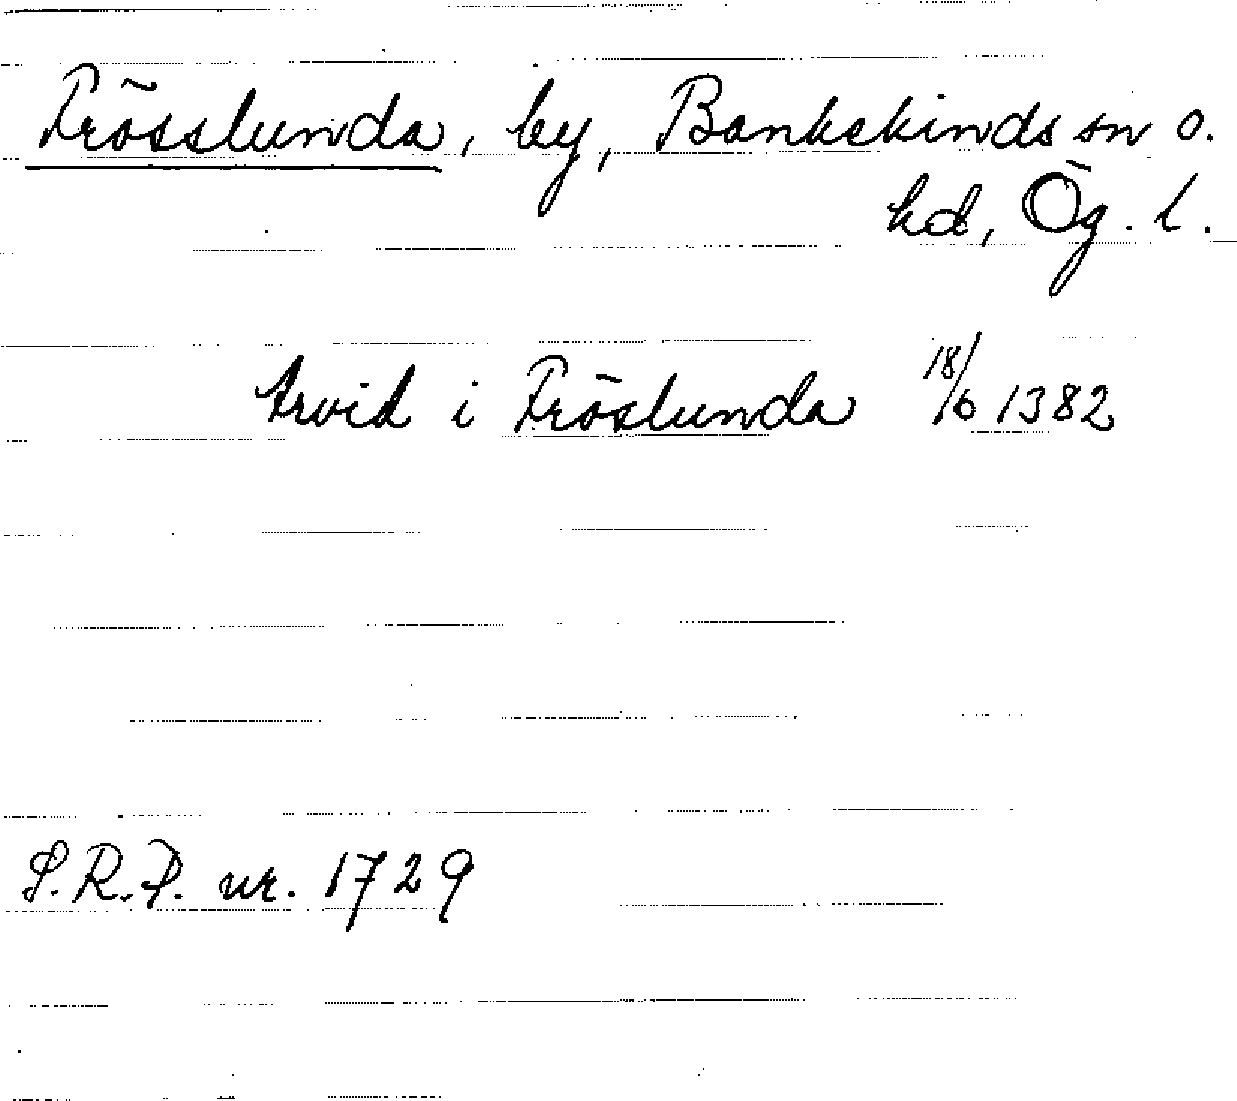 Frösslunda, by, Bankekinds sn o.
hd, Ög. l.
Arvid i Fröslunda 18/6 1382
S.R.P. nr. 1729